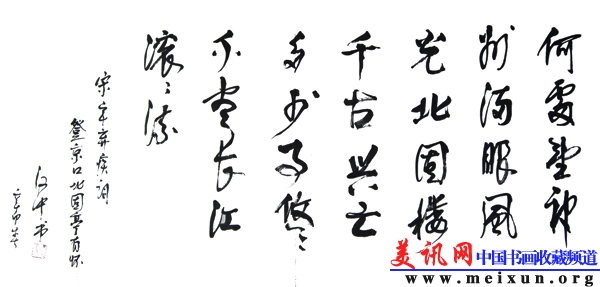 何處望神
州满眼風
光北固樓
千古兴亡
多少事悠〻
不尽長江
滚〻流
宋辛弃疾詞
登京口北固亭有怀
美讯网 中国书画收藏频道
www.meixun.org